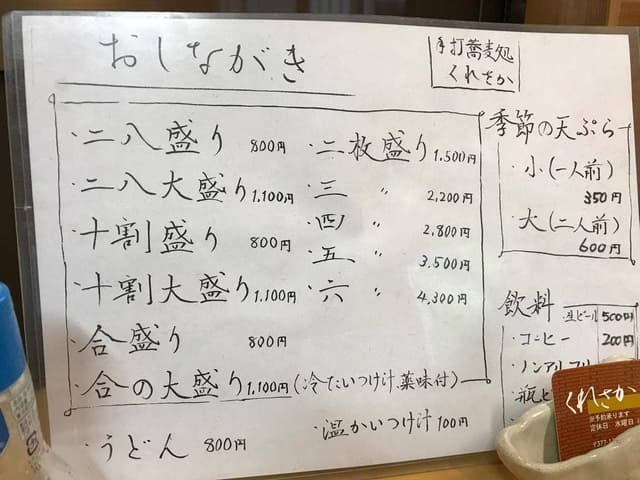 おしながき
手打蕎麦処
くれさか
・二八盛り 800円
・二八大盛り 1,100円
・十割盛り 800円
・十割大盛り 1,100円
・合盛り 800円
・合の大盛り 1,100円 (冷たいつけ汁 薬味付)
・二枚盛り 1,500円
・三 〃 2,200円
・四 〃 2,800円
・五 〃 3,500円
・六 〃 4,300円
・うどん 800円
・温かいつけ汁 100円
季節の天ぷら
・小(一人前)
350円
・大(二人前)
600円
飲料
・生ビール 500円
・コーヒー 200円
・ノンアル
・瓶
くれさか
※予約承ります
定休日 水曜日